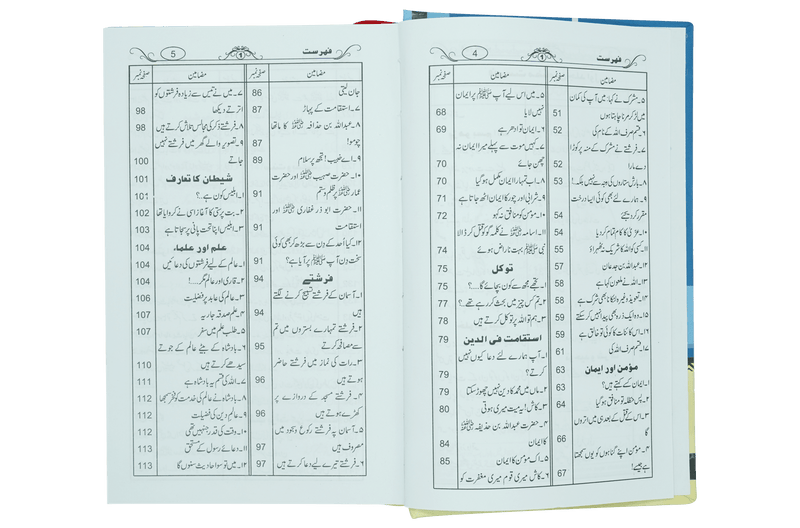 فہرست 1 4
مضامین صفحہ نمبر
۵۔مشرک نے کہا: میں آپ کی کمان
میں لڑ کر مرنا چاہتا ہوں 51
۶۔قسم صرف اللہ کے نام کی 52
۷۔فرشتے نے مشرک کے منہ پر کوڑا
دے مارا 52
۸۔بارش ستاروں کی وجہ سے نہیں بلکہ۔! 53
۹۔ہمارے لئے بھی کوئی ایسا درخت
مقرر کر دیجئے 54
۱۰۔عزیٰ کا کام تمام کر دیا 54
۱۱۔کسی کو اللہ کا شریک نہ ٹھہراؤ 55
۱۲۔عبداللہ بن جدعان 57
۱۳۔اللہ نے ملعون کہا ہے 58
۱۴۔تعویذ وغیرہ لٹکانا بھی شرک ہے 58
۱۵۔وہ ایک ذرہ بھی پیدا نہیں کر سکتے 59
۱۶۔اس کائنات کا کوئی تو خالق ہے 59
۱۷۔قسم صرف اللہ کی 61
مؤمن اور ایمان 63
۱۔ایمان کسے کہتے ہیں؟ 63
۲۔پس حنظلہ تو منافق ہو گیا 64
۳۔اس کے قتل کے بعد ہی میں اتروں
گا 66
۴۔مؤمن اپنے گناہوں کو یوں سمجھتا
ہے جیسے! 67
مضامین صفحہ نمبر
۵۔میں اس لیے آپ ﷺ پر ایمان
نہیں لایا 68
۶۔ایمان تو ادھر ہے 69
۷۔کہیں موت سے پہلے میرا ایمان نہ
چھن جائے 70
۸۔اب تمہارا ایمان مکمل ہو گیا 70
۹۔شرابی اور چور کا ایمان اٹھ جاتا ہے 71
۱۰۔مؤمن کو منافق نہ کہو 72
۱۱۔اسامہ نے کلمہ گو کو قتل کر ڈالا
نبی ﷺ بہت ناراض ہوئے 74
توکل 75
۱۔تجھے مجھ سے کون بچائے گا۔؟ 75
۲۔تم کس چیز میں بحث کر رہے تھے 77
۳۔ہم تو اللہ پر توکل کرتے ہیں 78
استقامت فی الدین 79
۱۔آپ ہمارے لئے دعا کیوں نہیں
کرتے؟ 79
۲۔ماں میں محمد کا دین نہیں چھوڑ سکتا 79
۳۔کاش! یہ میت میری ہوتی 80
۴۔حضرت عبداللہ بن حذیفہ
کا ایمان 84
۵۔اک مؤمن کا ایمان 85
۶۔کاش میری قوم میری مغفرت کو
فہرست 1 5
مضامین صفحہ نمبر
جان لیتی 86
۷۔استقامت کے پہاڑ 87
۸۔عبداللہ بن حذافہ کا ماتھا
چومو! 87
۹۔اے خبیب! تجھ پر سلام 89
۱۰۔حضرت صہیب اور حضرت
عمار پر ظلم و ستم 91
۱۱۔حضرت ابو ذر غفاری اور
استقامت 91
۱۲۔کیا احد کے دن سے بڑھ کر بھی کوئی
سخت دن آپ ﷺ پر آیا ہے؟ 91
فرشتے 94
۱۔آسمان کے فرشتے تسبیح کرنے لگتے
ہیں 94
۲۔فرشتے تمہارے بستروں میں تم
سے مصافحہ کرتے 95
۳۔رات کی نماز میں فرشتے حاضر
ہوتے ہیں 96
۴۔فرشتے مسجد کے دروازے پر
کھڑے ہوتے ہیں 96
۵۔آسمان پہ فرشتے رکوع و سجود میں
مصروف ہیں 97
۶۔فرشتے تیرے لیے دعا کرتے ہیں 97
مضامین صفحہ نمبر
۷۔میں نے تیس سے زیادہ فرشتوں کو
اترتے دیکھا 98
۸۔فرشتے ذکر کی مجالس تلاش کرتے ہیں 98
۹۔تصویر والے گھر میں فرشتے نہیں
جاتے 100
شیطان کا تعارف 101
۱۔ابلیس کون ہے۔؟ 101
۲۔بت پرستی کا آغاز اسی نے کروایا تھا 102
۳۔ابلیس اپنا تخت پانی پر سجاتا ہے 103
علم اور علماء 104
۱۔عالم کے لیے فرشتوں کی دعائیں 104
۲۔قاری اور عالم مگر۔۔۔! 104
۳۔عالم کی عابد پر فضیلت 106
۴۔علم صدقہ جاریہ 107
۵۔طلب علم میں سفر 107
۶۔بادشاہ کے بیٹے عالم کے جوتے
سیدھے کرتے ہیں 110
۷۔اللہ کی قسم یہ بادشاہ ہے 111
۸۔بادشاہ نے عالم کی خدمت کو فخر سمجھا 112
۹۔عالم دین کی فضیلت 112
۱۰۔وقت کی قدر جنہیں تھی 112
۱۱۔دعائے رسول کے مستحق 113
۱۲۔میں تو سوا حادیث سنوں گا 113